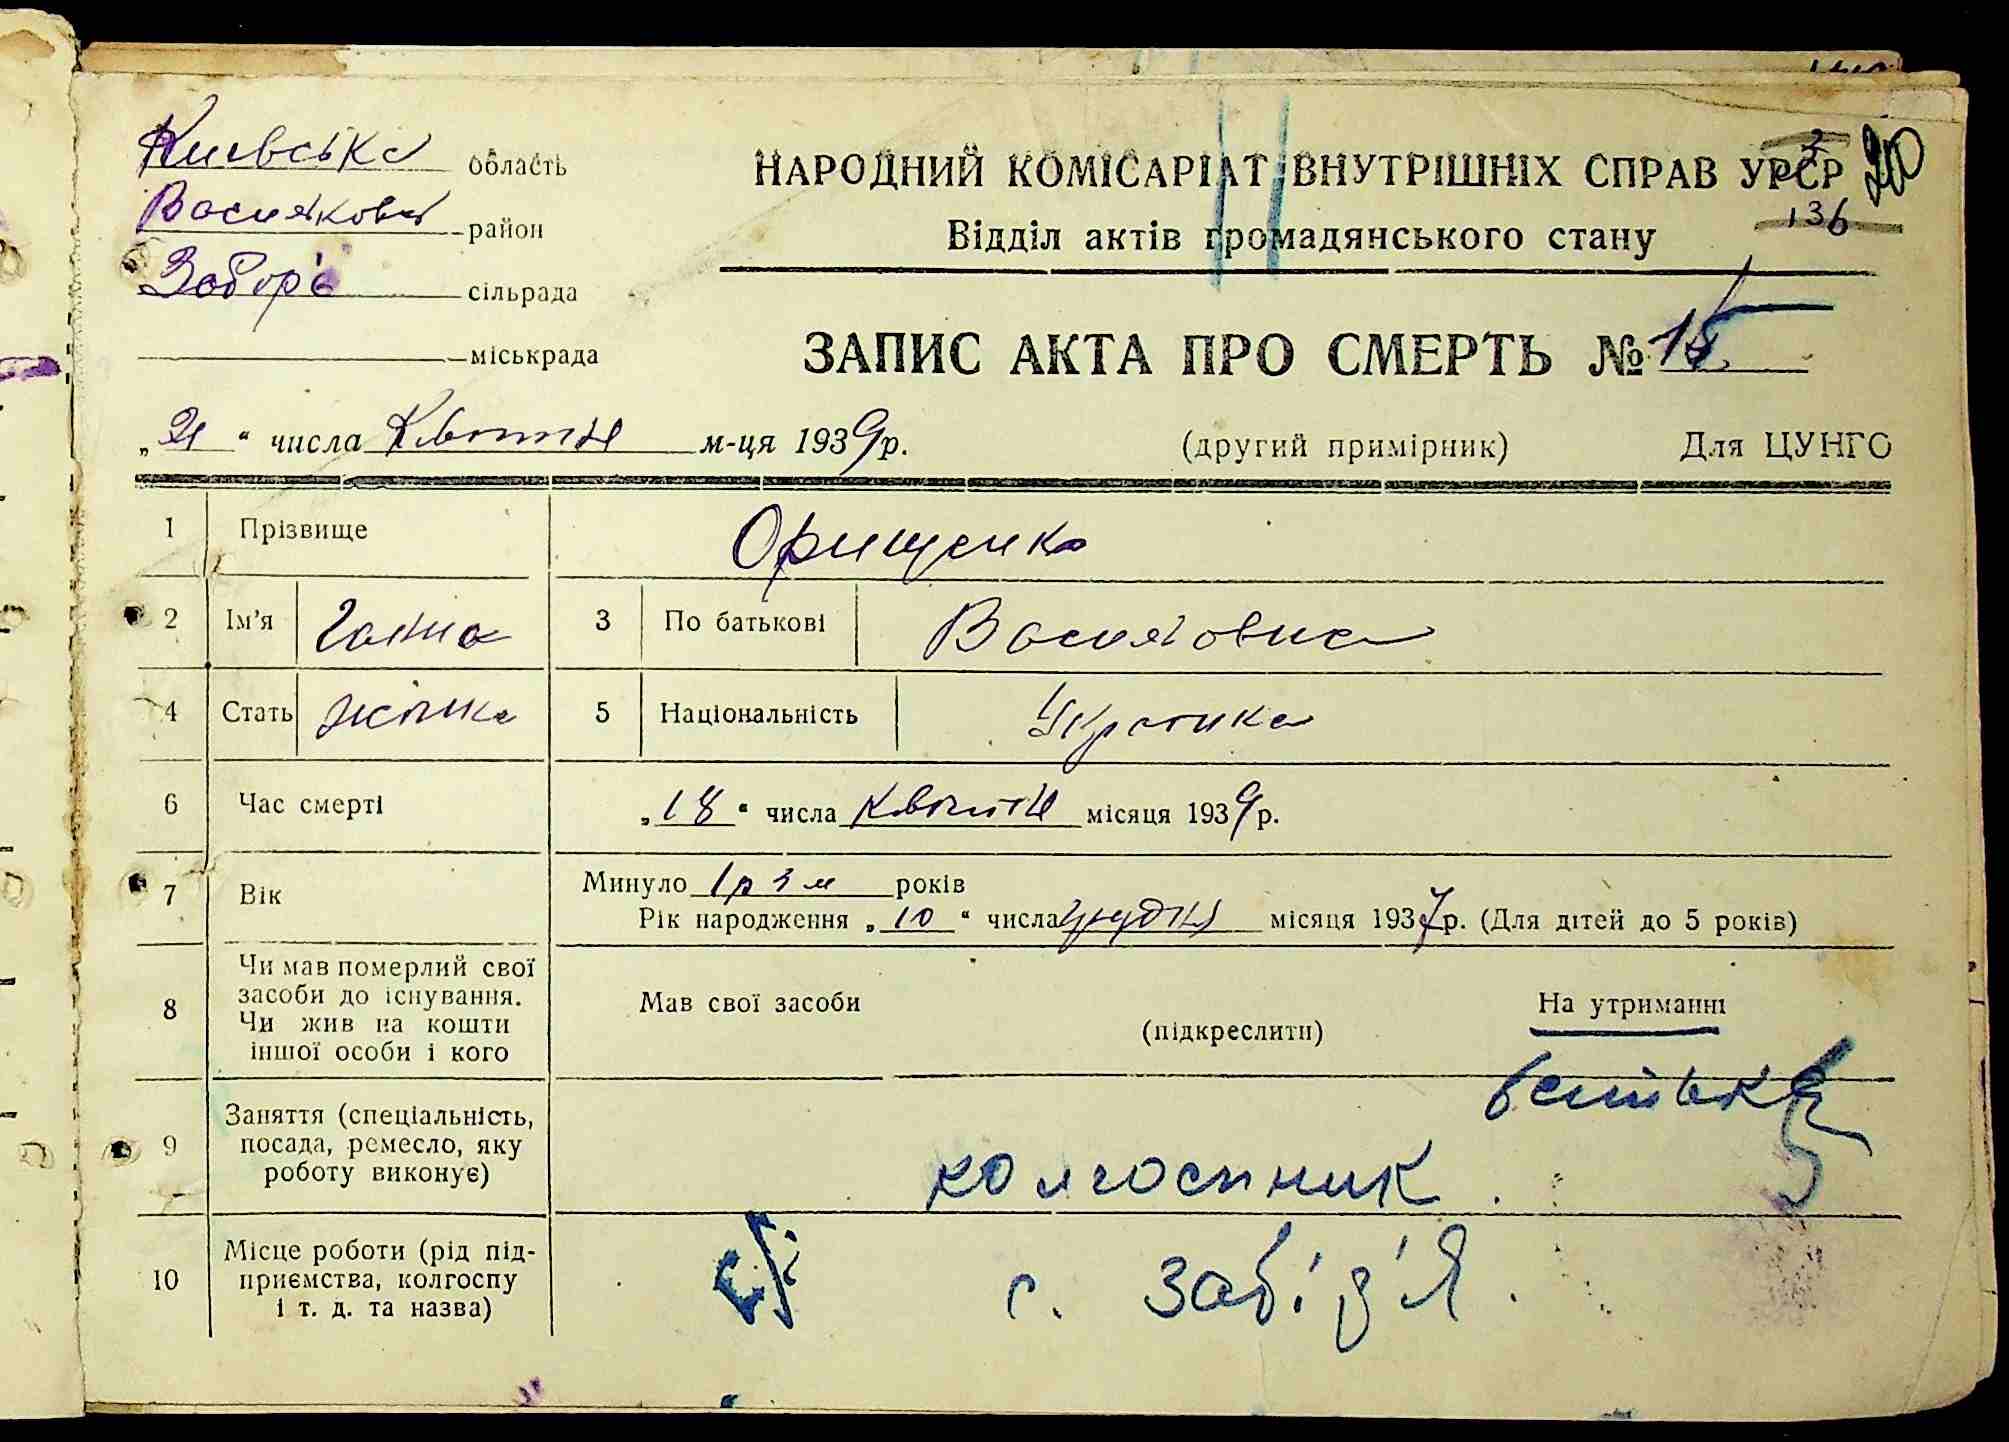 Київська область
Васильков район
Забор'є сільрада
міськрада
НАРОДНИЙ КОМІСАРІАТ ВНУТРІШНІХ СПРАВ УРСР
Відділ актів громадянського стану
136
20
ЗАПИС АКТА ПРО СМЕРТЬ № 15
„21“ числа Квітня м-ця 1939р. (другий примірник) Для ЦУНГО
1 Прізвище Орищенко
2 Ім'я Галина 3 По батькові Василовна
4 Стать жінка 5 Національність Українка
6 Час смерті „18“ числа Квітня місяця 1939р.
7 Вік Минуло 1р 3м років
Рік народження „10“ числа грудня місяця 1937р. (Для дітей до 5 років)
8 Чи мав померлий свої засоби до існування. Чи жив на кошти іншої особи і кого
Мав свої засоби (підкреслити) На утриманні
батька
9 Заняття (спеціальність, посада, ремесло, яку роботу виконує) колгоспник.
10 Місце роботи (рід підприємства, колгоспу і т. д. та назва) с/г с. Забір'я.